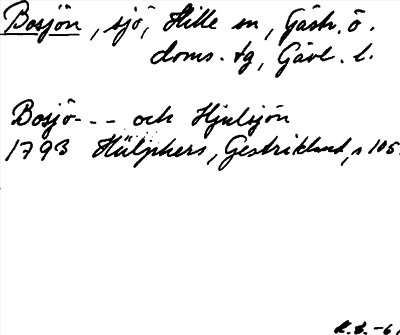 Bosjön, sjö, Hille sn, Gästr. ö.
doms. tg, Gävl. l.
Bosjö--- och Hjulsjön
1793 Hülphers, Gestrikland, s 105.